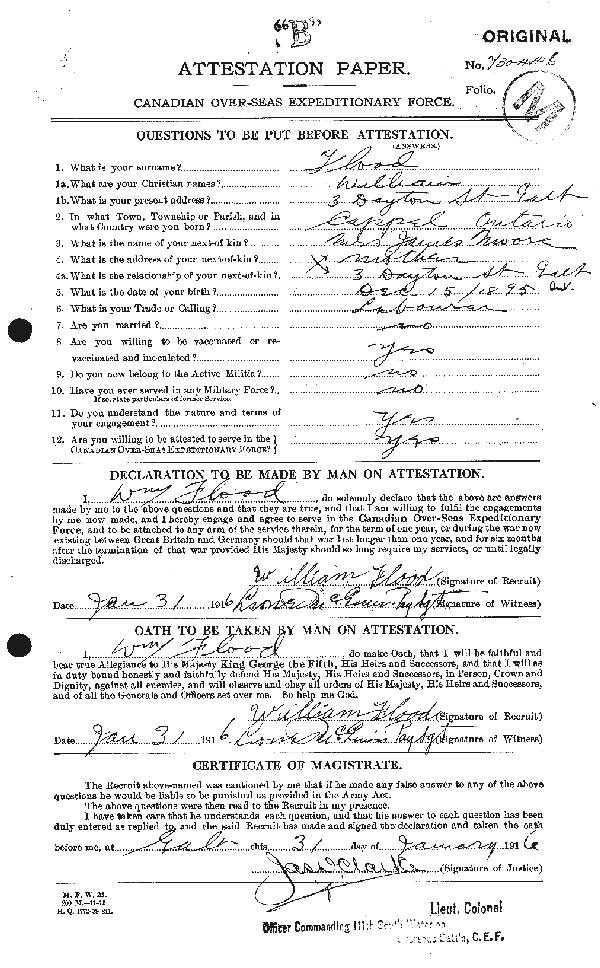 "B"
ORIGINAL
ATTESTATION PAPER.
No.
Folio.
CANADIAN OVER-SEAS EXPEDITIONARY FORCE.
QUESTIONS TO BE PUT BEFORE ATTESTATION.
(ANSWERS.)
1. What is your surname? Flood
1a. What are your Christian names? William
1b. What is your present address? 3 Dayton St Galt
2. In what Town, Township or Parish, and in
what Country were you born? Cappel Ontario
3. What is the name of your next-of-kin? Mrs James Moore
4. What is the address of your next-of-kin? Mother
4a. What is the relationship of your next-of-kin? 3 Dayton St Galt
Ont.
5. What is the date of your birth? Dec 15/1895
6. What is your Trade or Calling? Labourer
7. Are you married? no
8. Are you willing to be vaccinated or re-
vaccinated and inoculated? yes
9. Do you now belong to the Active Militia? no
10. Have you ever served in any Military Force? no
If so, state particulars of former Service.
11. Do you understand the nature and terms of
your engagement? Yes
12. Are you willing to be attested to serve in the
CANADIAN OVER-SEAS EXPEDITIONARY FORCE? yes
DECLARATION TO BE MADE BY MAN ON ATTESTATION.
I, Wm Flood, do solemnly declare that the above are answers
made by me to the above questions and that they are true, and that I am willing to fulfil the engagements
by me now made, and I hereby engage and agree to serve in the Canadian Over-Seas Expeditionary
Force, and to be attached to any arm of the service therein, for the term of one year, or during the war now
existing between Great Britain and Germany should that war last longer than one year, and for six months
after the termination of that war provided His Majesty should so long require my services, or until legally
discharged.
William Flood (Signature of Recruit)
Date Jan 31 1916 (Signature of Witness)
OATH TO BE TAKEN BY MAN ON ATTESTATION.
I, Wm Flood, do make Oath, that I will be faithful and
bear true Allegiance to His Majesty King George the Fifth, His Heirs and Successors, and that I will as
in duty bound honestly and faithfully defend His Majesty, His Heirs and Successors, in Person, Crown and
Dignity, against all enemies, and will observe and obey all orders of His Majesty, His Heirs and Successors,
and of all the Generals and Officers set over me. So help me God.
William Flood (Signature of Recruit)
Date Jan 31 1916 (Signature of Witness)
CERTIFICATE OF MAGISTRATE.
The Recruit above-named was cautioned by me that if he made any false answer to any of the above
questions he would be liable to be punished as provided in the Army Act.
The above questions were then read to the Recruit in my presence.
I have taken care that he understands each question, and that his answer to each question has been
duly entered as replied to, and the said Recruit has made and signed the declaration and taken the oath
before me, at Galt this 31 day of January 1916
(Signature of Justice)
M. F. W. 23.
H. Q. 1772-39-841.
Lieut. Colonel
Officer Commanding 111th South Waterloo
Overseas Batt'n, C. E. F.